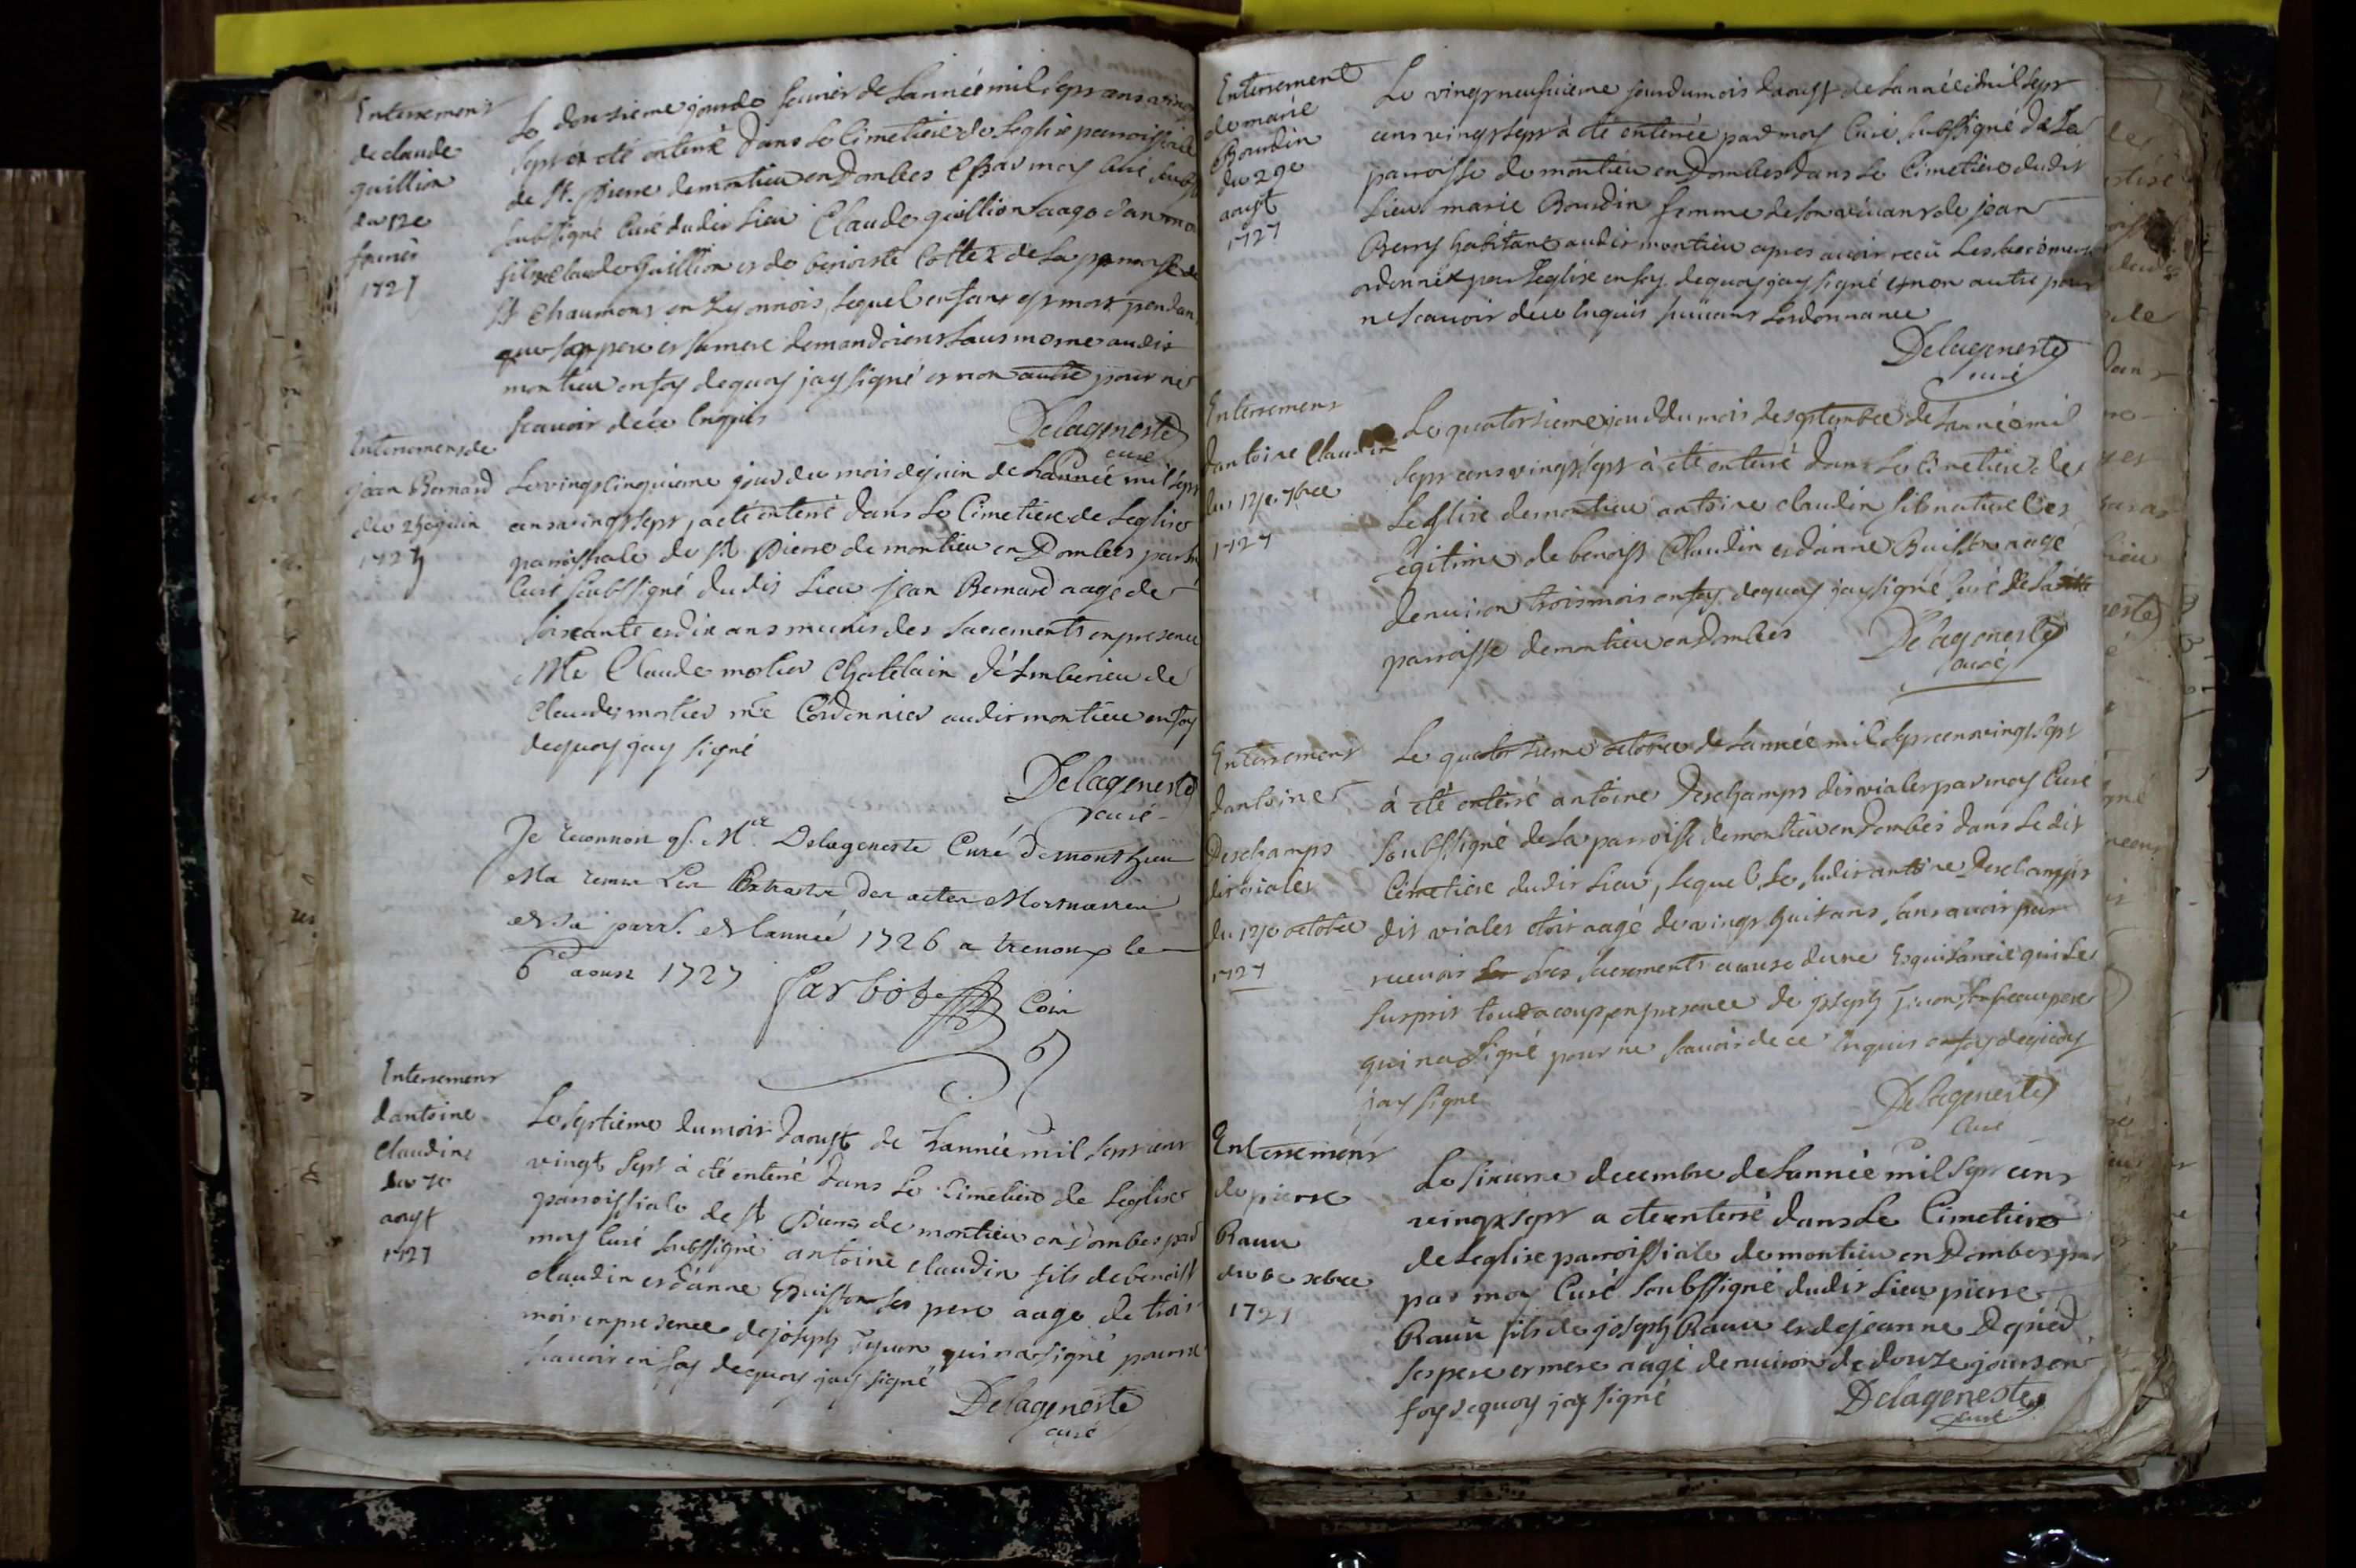 Enterrement
de claude
guillion
du 12e
feurier
1727
Le douzieme jour de feurier de Lannée mil sept cens vingt
sept a eté enterré dans Le Cimetiere de Leglise parroissiale
de St. Pierre de montieu en Dombes par moy Curé
soubssigné Curé dudit Lieu Claude guillion aagé dan
fils de Claude guillion et de benoiste Cottez de La parroisse de
St Chaumont en Lyonnois, Lequel enfant est mort pendan
que son pere et sa mere demandoient Laumosne audit
montieu en foy dequoy jay signé et non autre pour ne
scauoir de ce Enquis
Delageneste
curé
Enterrement de
jean Bernard
du 25e juin
1727
Le vingt cinquieme jour du mois de juin de Lannée mil sept
cens vingt sept, a eté enterré dans Le Cimetiere de Leglise
parroissiale de St Pierre de montieu en Dombes par
Curé soubssigné dudit Lieu jean Bernard aagé de
soixante et dix ans munis des sacrements en presence
Me Claude mortier Chatelain d'Amberieu de
Claude mortier me Cordonnier audit montieu en foy
dequoy jay signé
Delageneste
curé
Je reconnon q. Mre Delageneste Curé de monthieu
Ma remis Les Extraits des actes Mortuaires
de sa parr. de lannée 1726 a treuoux le
6e aoust 1727
Jarbot Com
Enterrement
dantoine
Claudin
du 7e
aoust
1727
Le septieme du mois daoust de Lannée mil sept cens
vingt sept à eté enterré dans Le Cimetiere de Leglise
parroissiale de St Pierre de montieu en Dombes par
moy Curé soubssigné antoine claudin fils de benoist
claudin et d'anne Buisson ses pere aagé de trois
mois en presence de joseph Tyuon qui na signé pour ne
scauoir en foy dequoy jay signé
Delageneste
curé
Enterrement
de marie
Bourdin
du 29e
aoust
1727
Le vingt neufuieme jour du mois daoust de Lannée mil sept
cens vingt sept à eté enterrée par moy Curé soubssigné de La
parroisse de montieu en Dombes dans Le Cimetiere dudit
Lieu marie Bourdin femme de son viuant de jean
Berry habitant audit montieu apres auoir recû Les sacrements
ordonnéx par Leglise en foy dequoy jay signé et non autre pour
ne scauoir de ce Enquis suiuant Lordonnance
Delageneste
curé
Enterrement
dantoine Claudin
du 14e 7bre
1727
Le quatorzieme jour du mois de septembre de Lannée mil
sept cens vingt sept à eté enterré dans Le Cimetiere de
Leglise de montieu antoine claudin fils naturel et
Legitime de benoist Claudin et danne Buisson aagé
denuiron trois mois en foy dequoy jay signé curé de Laditte
parroisse de montieu en Dombes
Delageneste
curé
Enterrement
dantoine
Deschamps
dit viales
du 14e octobre
1727
Le quatorzieme octobre de Lannée mil sept cens vingt sept
à eté enterré antoine Deschamps dit viales par moy Curé
soubssigné de La parroisse de montieu en Dombes dans Le dit
Cimetiere dudit Lieu, Lequel Le,, ludit antoine Deschamps
dit viales etoit aagé de vingt huit ans, sans auoir peu
receuoir Les sacrements a cause dune Esquinancie qui Le
surprit tout a coup, en presence de joseph Tiuon son beau pere
qui na signé pour ne scauoir de ce Enquis en foy dequoy
jay signé
Delageneste
Curé
Enterrement
de pierre
Rauu
du 6e xbre
1727
Le sixieme decembre de Lannée mil sept cens
vingt sept a eté enterré dans Le Cimetiere
de Leglise parroissiale de montieu en Dombes par
par moy Curé soubssigné dudit Lieu pierre
Rauu fils de joseph Rauu et de jeanne Depied
ses pere et mere aagé denuiron de douze jours en
foy dequoy jay signé
Delageneste
curé